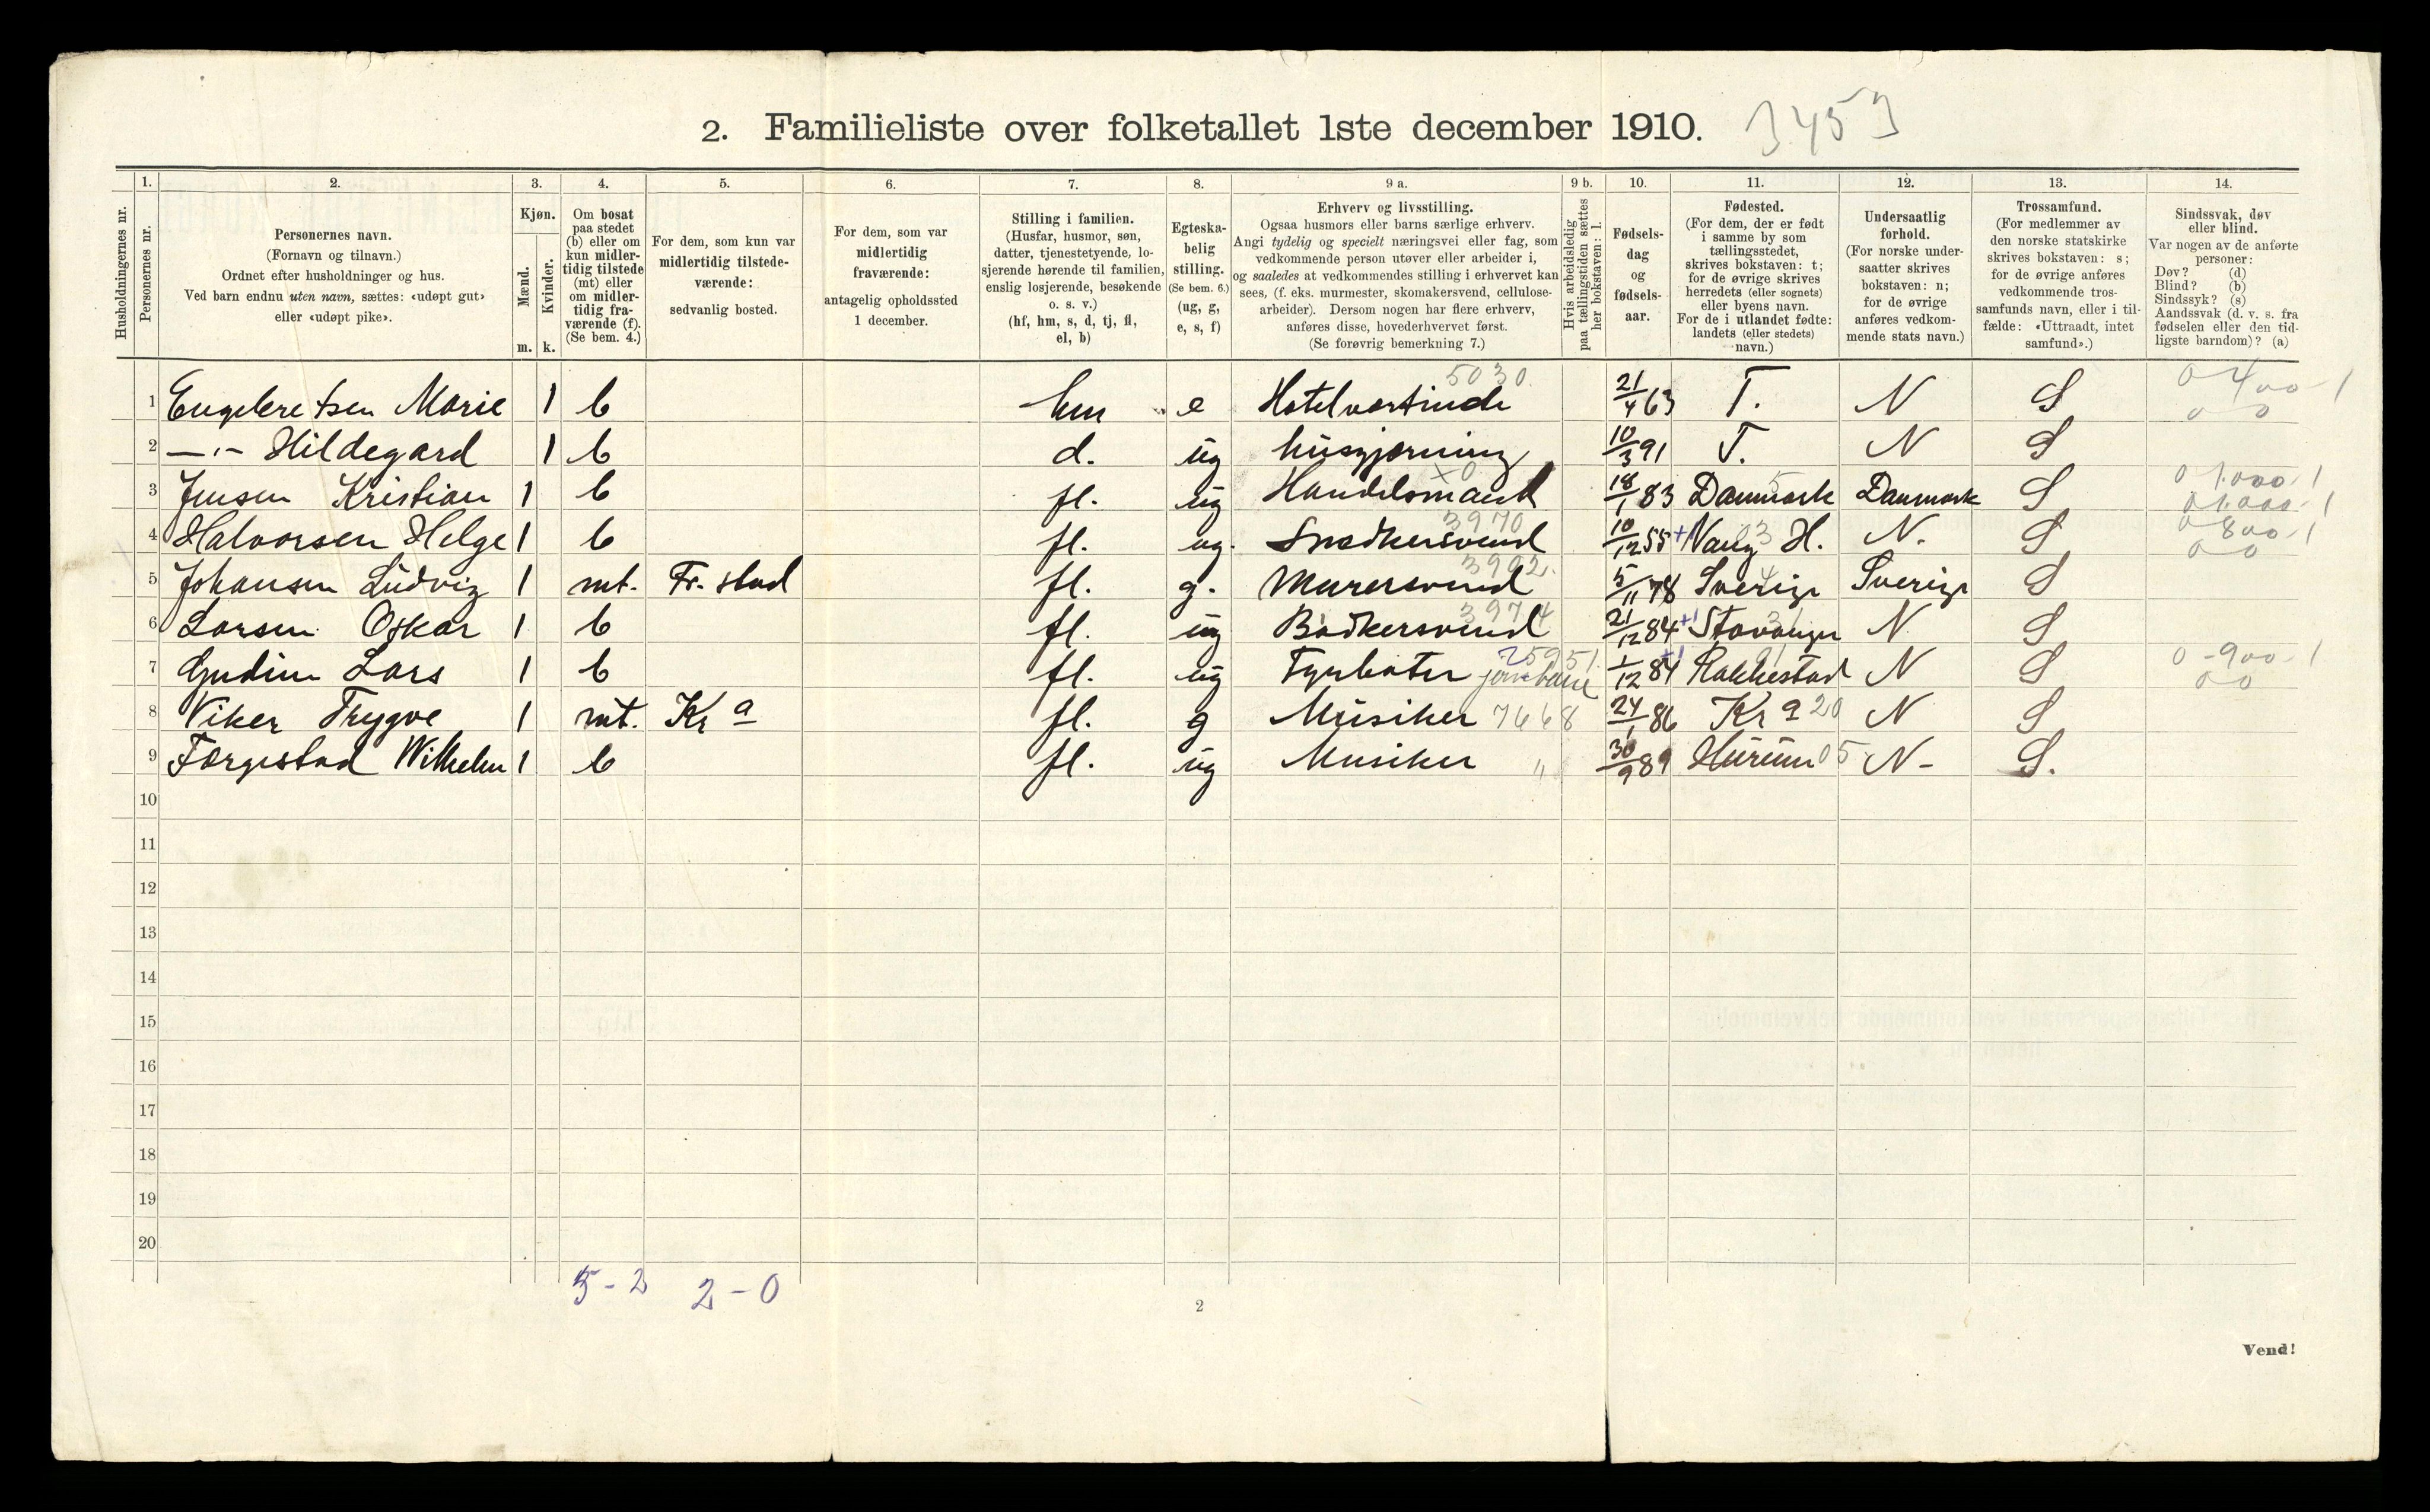 2. Familieliste over folketallet 1ste december 1910. 3453
Husholdningernes nr.
1. Personernes nr.
2. Personernes navn.
(Fornavn og tilnavn.)
Ordnet efter husholdninger og hus.
Ved barn endnu uten navn, sættes: «udøpt gut»
eller «udøpt pike».
3. Kjøn.
Mænd. m.
Kvinder. k.
4. Om bosat
paa stedet
(b) eller om
kun midler-
tidig tilstede
(mt) eller
om midler-
tidig fra-
værende (f).
(Se bem. 4.)
5. For dem, som kun var
midlertidig tilstede-
værende:
sedvanlig bosted.
6. For dem, som var
midlertidig
fraværende:
antagelig opholdssted
1 december.
7. Stilling i familien.
(Husfar, husmor, søn,
datter, tjenestetyende, lo-
sjerende hørende til familien,
enslig losjerende, besøkende
o. s. v.)
(hf, hm, s, d, tj, fl,
el, b)
8. Egteska-
belig
stilling.
(Se bem. 6.)
(ug, g,
e, s, f)
9 a. Erhverv og livsstilling.
Ogsaa husmors eller barns særlige erhverv.
Angi tydelig og specielt næringsvei eller fag, som
vedkommende person utøver eller arbeider i,
og saaledes at vedkommendes stilling i erhvervet kan
sees, (f. eks. murmester, skomakersvend, cellulose-
arbeider). Dersom nogen har flere erhverv,
anføres disse, hovederhvervet først.
(Se forøvrig bemerkning 7.)
9 b. Hvis arbeidsledig
paa tællingstiden sættes
her bokstaven: l.
10. Fødsels-
dag
og
fødsels-
aar.
11. Fødested.
(For dem, der er født
i samme by som
tællingsstedet,
skrives bokstaven: t;
for de øvrige skrives
herredets (eller sognets)
eller byens navn.
For de i utlandet fødte:
landets (eller stedets)
navn.)
12. Undersaatlig
forhold.
(For norske under-
saatter skrives
bokstaven: n;
for de øvrige
anføres vedkom-
mende stats navn.)
13. Trossamfund.
(For medlemmer av
den norske statskirke
skrives bokstaven: s;
for de øvrige anføres
vedkommende tros-
samfunds navn, eller i til-
fælde: «Uttraadt, intet
samfund».)
14. Sindssvak, døv
eller blind.
Var nogen av de anførte
personer:
Døv? (d)
Blind? (b)
Sindssyk? (s)
Aandssvak (d. v. s. fra
fødselen eller den tid-
ligste barndom)? (a)
1 Engebretsen Marie 1 b hm e Hotelvertinde 5030 21/4 63 T. N S 0 400-1 0 0
2 —"— Hildegard 1 b d. ug husgjerning 10/3 91 T. N S
3 Jensen Kristian 1 b fl. ug Handelsmand x0 18/1 83 Danmark 5 Danmark S 0 1.000-1 0 1.000-1
4 Halvorsen Helge 1 b fl. ug. Snedkersvend 3970 10/12 55 +1 Vang H. 3 N. S 0 800-1 0 0
5 Johansen Ludvig 1 mt. Fr. stad fl. g. Murersvend 3992 5/11 78 Sverige 4 Sverige S
6 Larsen Oskar 1 b fl. ug Bødkersvend 3974 21/12 84 +1 Stavanger 31 N S
7 Gudim Lars 1 b fl. ug Fyrbøter jernbane 25951 1/12 84 +1 Rakkestad N S 0-900-1 0 0
8 Viker Trygve 1 mt. Kr a fl. g Musiker 7668 24/1 86 Kr a 20 N S
9 Færgestad Wilhelm 1 b fl. ug Musiker " 30/9 89 Hurum 05 N- S.
10
11
12
13
14
15
16
17
18
19
20
5-2 2-0
2
Vend!